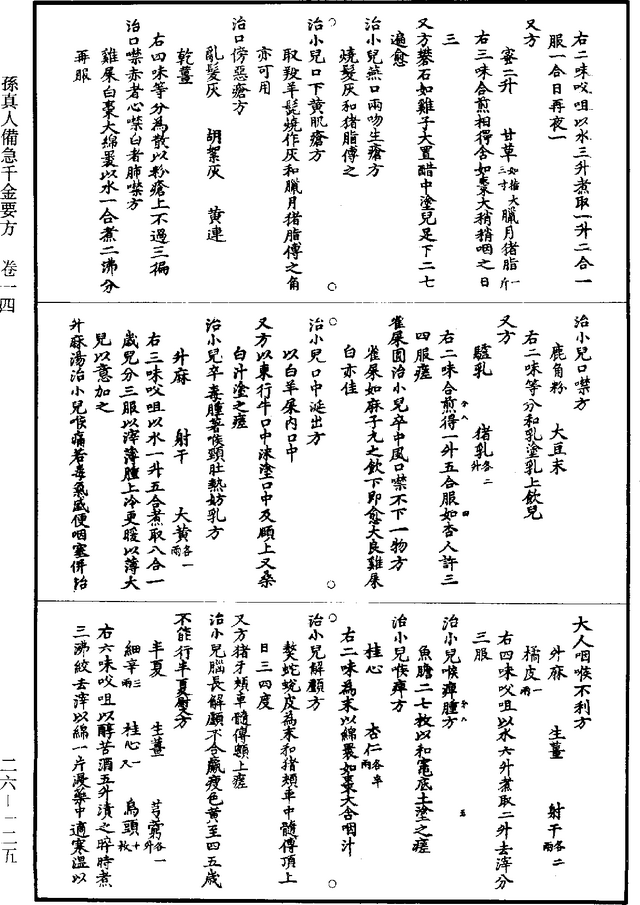 右二味㕮咀以水三升煮取一升二合一
服一合日再夜一
又方
蜜二升 甘草如指大三寸 臘月猪脂一斤
右三味合煎相得含如棗大稍稍咽之日
三
又方礬石如雞子大置醋中塗兒足下二七
遍愈
治小兒燕口兩吻生瘡方
燒髮灰和猪脂傅之
治小兒口下黃肌瘡方
取羖羊髭燒作灰和臘月猪脂傅之角
亦可用
治口傍惡瘡方
亂髮灰 胡絮灰 黃連
乾薑
右四味等分為散以粉瘡上不過三徧
治口噤赤者心噤白者肺噤方
雞屎白棗大綿裹以水一合煮二沸分
再服
治小兒口噤方
鹿角粉 大豆末
右二味等分和乳塗乳上飲兒
又方
驢乳 猪乳各二升
右二味合煎得一升五合服如杏人許三
四服瘥
雀屎丸治小兒卒中風口噤不下一物方
雀屎如麻子丸之飲下即愈大良雞屎
白亦佳
治小兒口中涎出方
以白羊屎内口中
又方以東行牛口中沫塗口中及頤上又桑
白汁塗之瘥
治小兒卒毒腫著喉頸壯熱妨乳方
升麻 射干 大黃各一兩
右三味㕮咀以水一升五合煮取八合一
歲兒分三服以滓薄腫上冷更暖以薄大
兒以意加之
升麻湯治小兒喉痛若毒氣盛便咽塞併治
大人咽喉不利方
升麻 生薑 射干各二兩
橘皮一兩
右四味㕮咀以水六升煮取二升去滓分
三服
治小兒喉痺腫方
魚膽二七枚以和竈底土塗之瘥
治小兒喉痺方
桂心 杏仁各半兩
右二味為末以綿裹如棗大含咽汁
治小兒解顱方
熬蛇蛻皮為末和猪頰車中髓傅頂上
日三四度
又方猪牙頰車髓傅顖上瘥
治小兒腦長解顱不合羸瘦色黃至四五歲
不能行半夏熨方
半夏 生薑 芎藭各一升
細辛三兩 桂心一尺 烏頭十枚
右六味㕮咀以醇苦酒五升漬之晬時煮
三沸絞去滓以綿一片浸藥中適寒溫以
孫真人備急千金要方 卷一四
二六—一二五